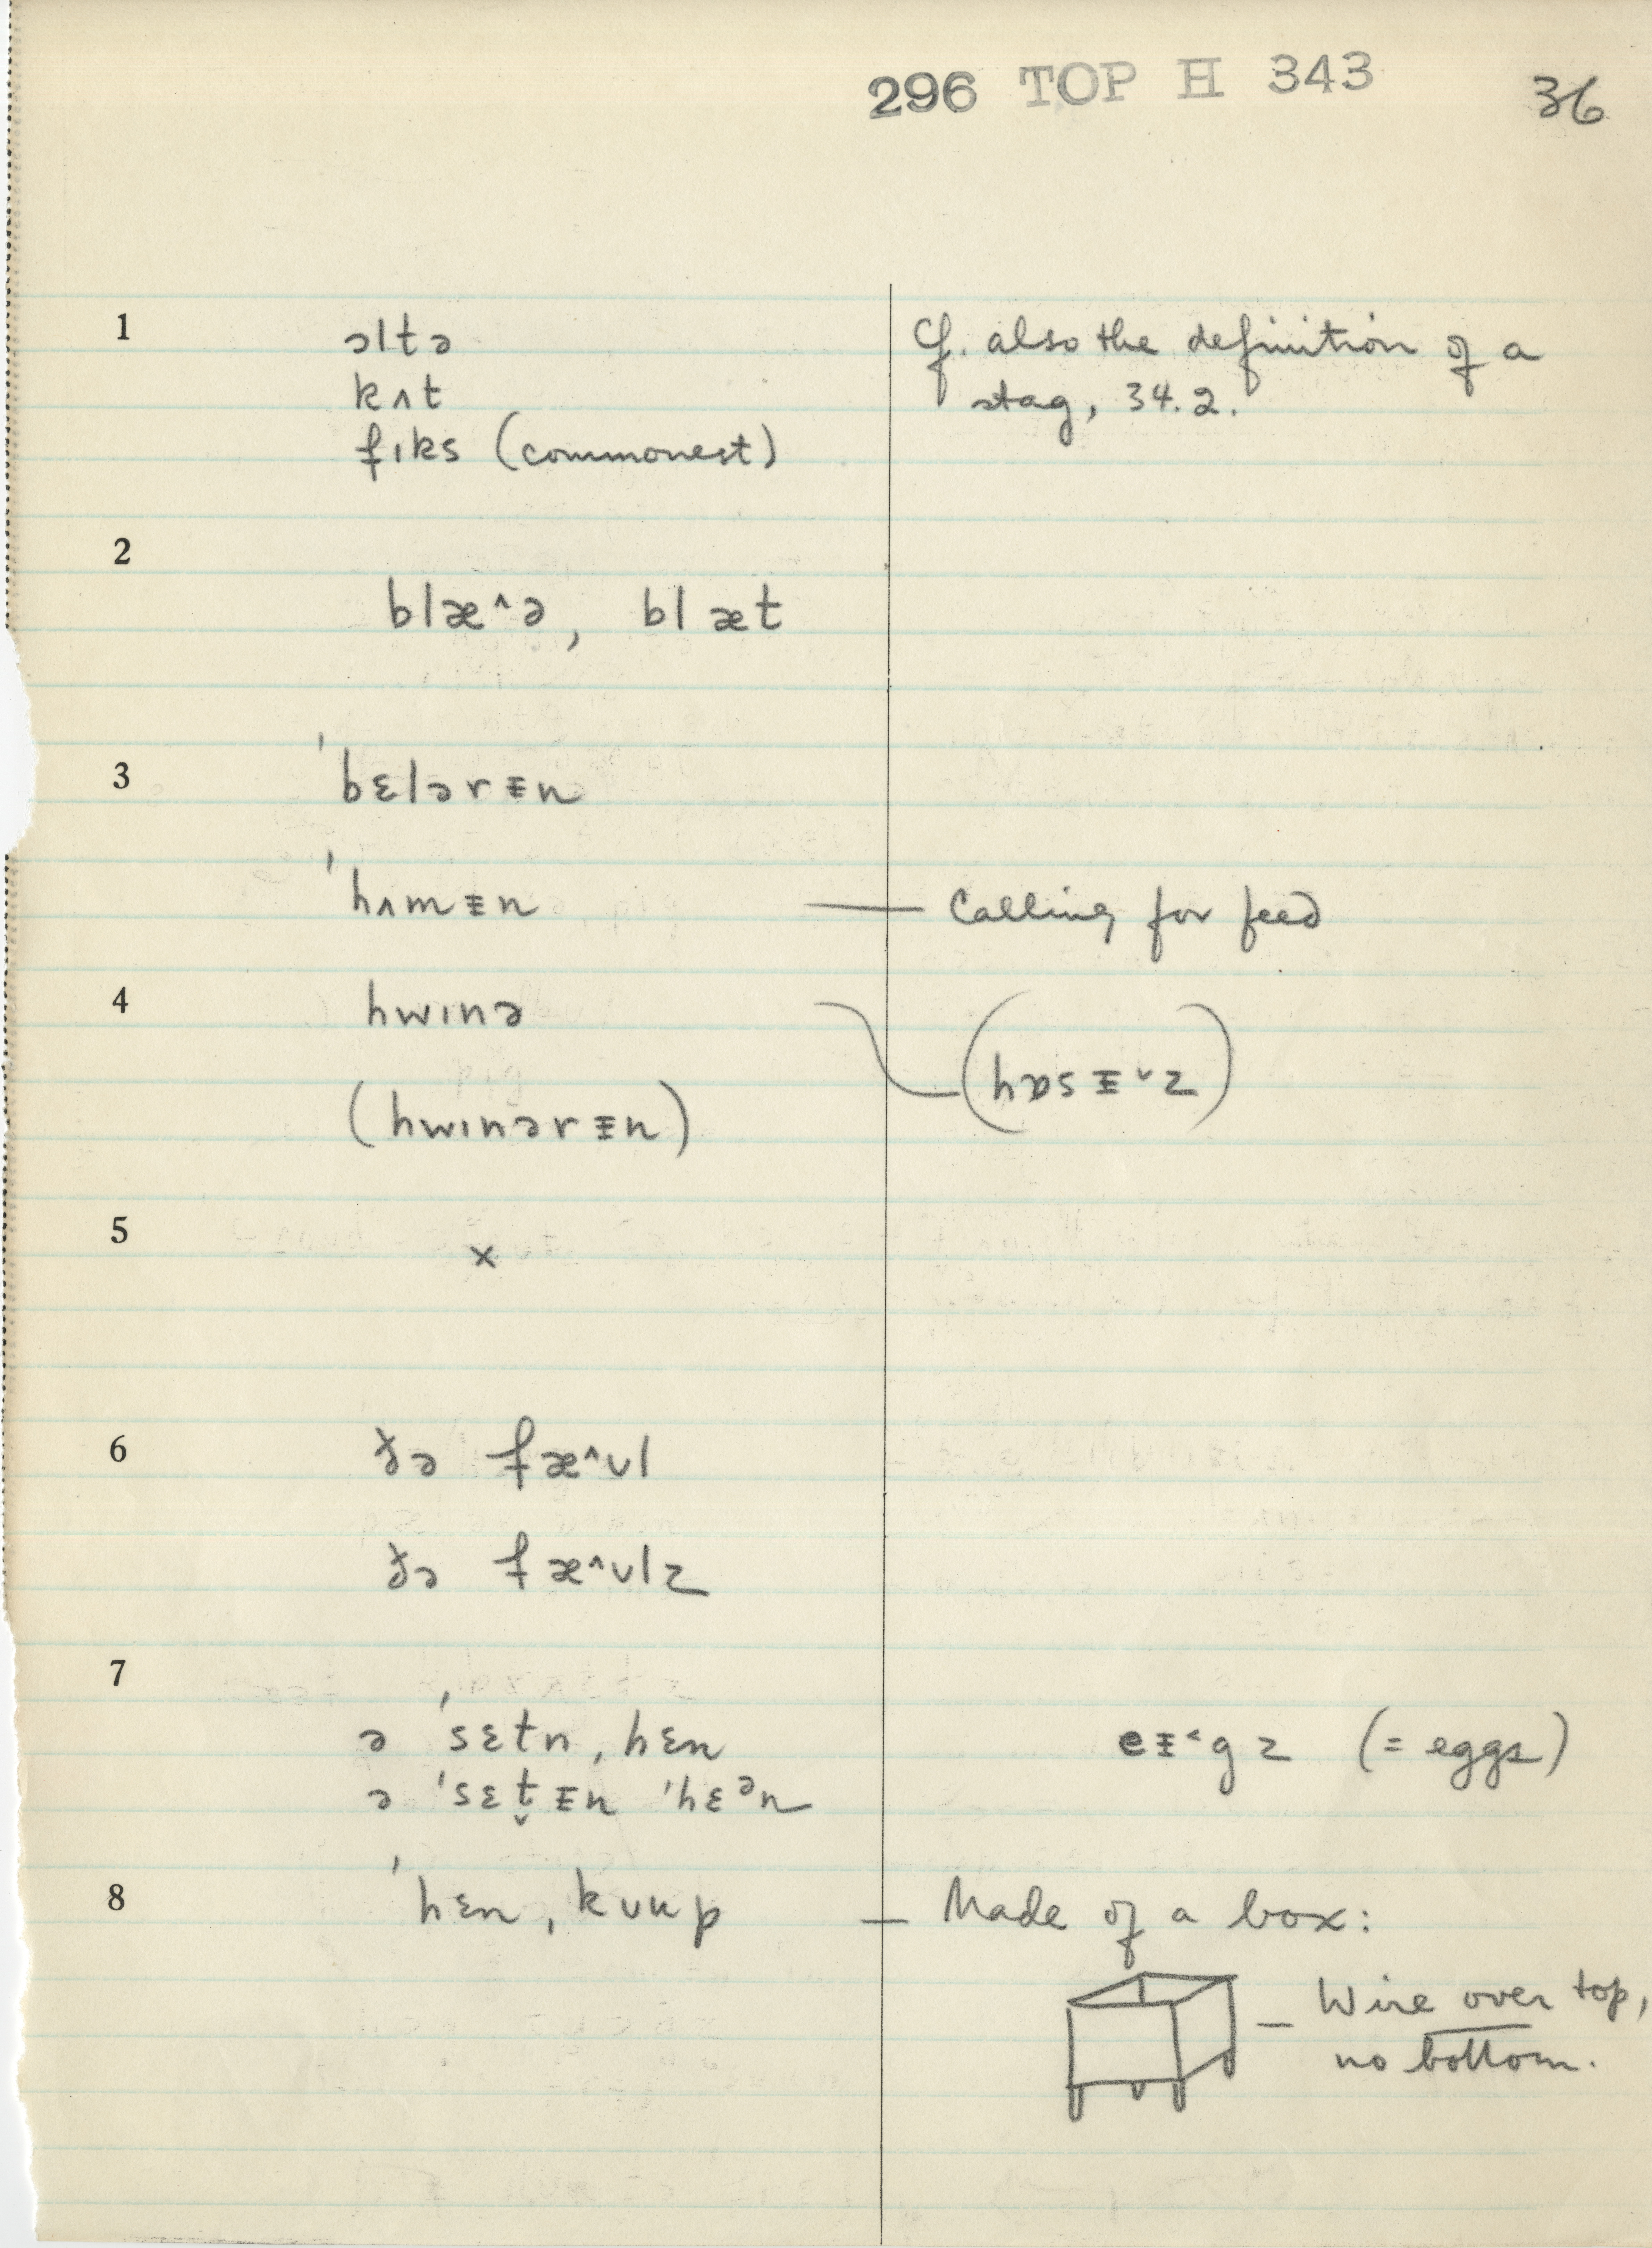 296 TOP H 343 36
1 ɔltə Cf. also the definition of a
kʌt stag, 34.2.
fɪks (commonest)
2
blæ^ə, blæt
3 ˈbɛlərᵻn
ˈhʌmᵻn — Calling for feed
4 hwɪnə (hɒsᵻ˅z)
(hwɪnərᵻn)
5 x
6 ðə fæ^ʊl
ðə fæ^ʊlz
7
ə ˈsɛtn̩ˌhɛn eᵻ˂gz (= eggs)
ə ˈsɛt̬ᵻn ˈhɛᵊn
8 ˈhɛnˌkʊup — Made of a box:
— Wire over top,
no bottom.